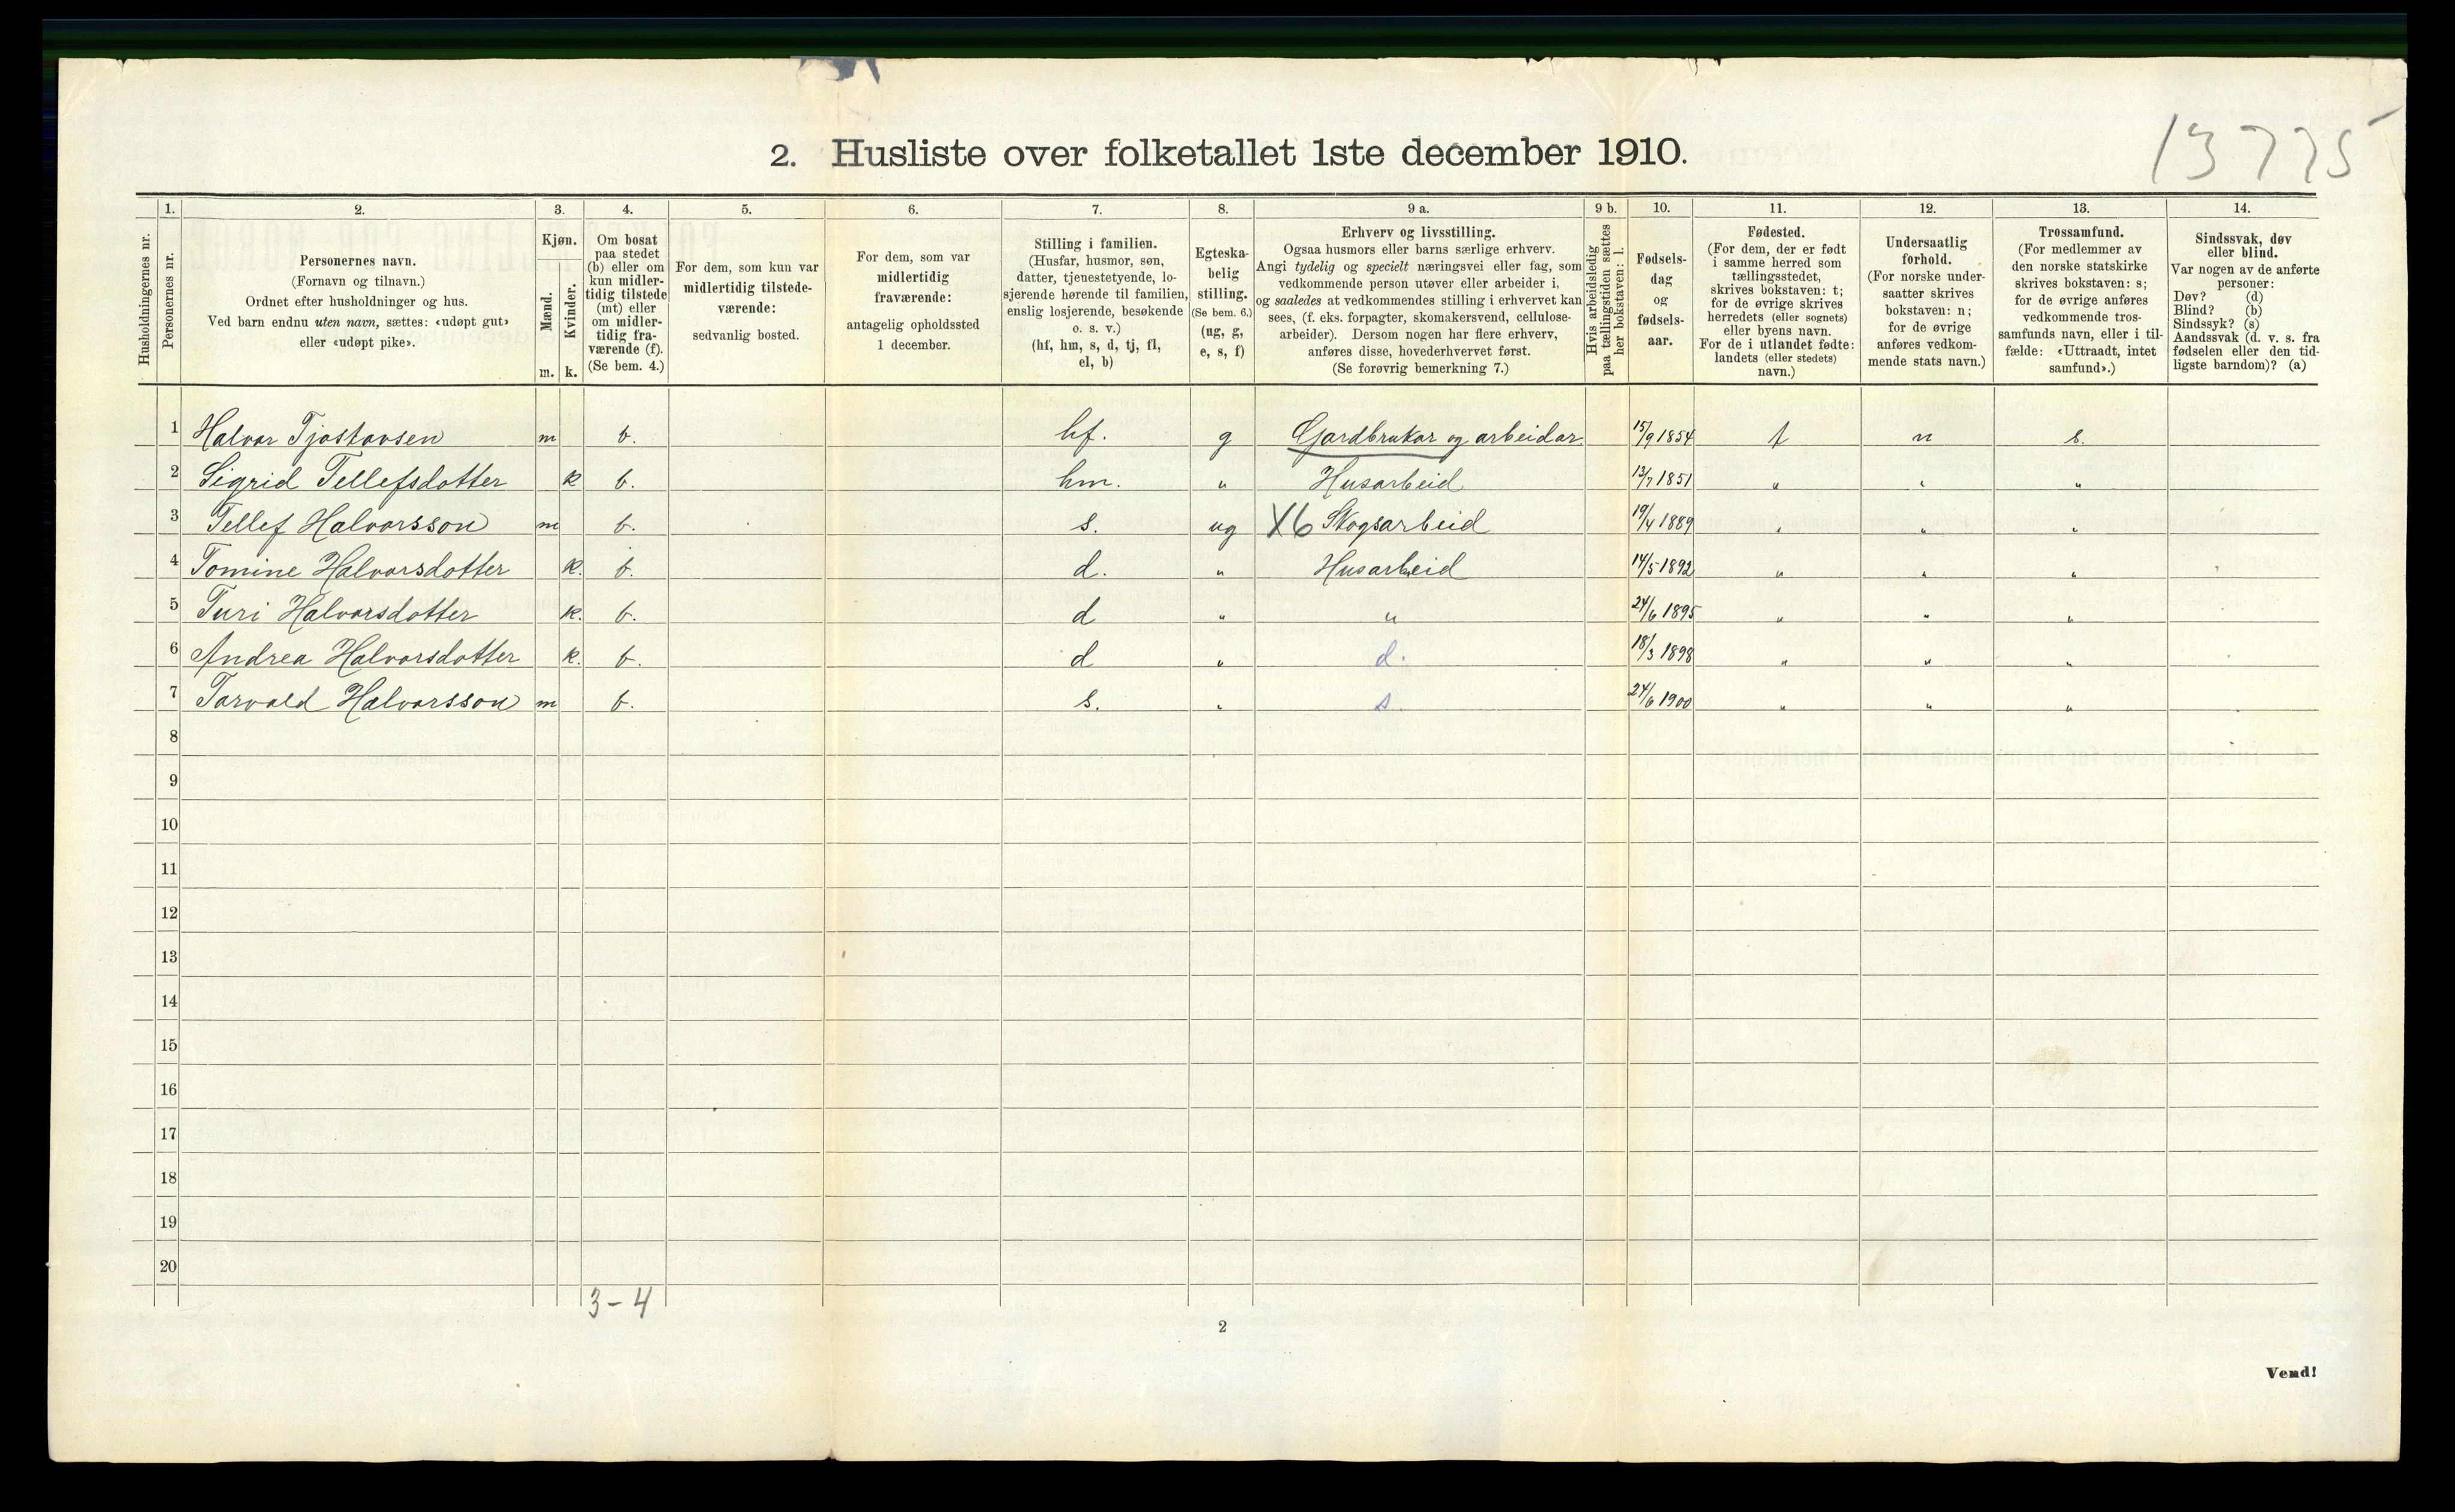 13775
2. Husliste over folketallet 1ste december 1910.
Husholdningernes nr.
1.
Personernes nr.
2.
Personernes navn.
(Fornavn og tilnavn.)
Ordnet efter husholdninger og hus.
Ved barn endnu uten navn, sættes: «udøpt gut»
eller «udøpt pike».
3.
Kjøn.
Mænd.
Kvinder.
m. k.
4.
Om bosat
paa stedet
(b) eller om
kun midler-
tidig tilstede
(mt) eller
om midler-
tidig fra-
værende (f).
(Se bem. 4.)
5.
For dem, som kun var
midlertidig tilstede-
værende:
sedvanlig bosted.
6.
For dem, som var
midlertidig
fraværende:
antagelig opholdssted
1 december.
7.
Stilling i familien.
(Husfar, husmor, søn,
datter, tjenestetyende, lo-
sjerende hørende til familien,
enslig losjerende, besøkende
o. s. v.)
(hf, hm, s, d, tj, fl,
el, b)
8.
Egteska-
belig
stilling.
(Se bem. 6.)
(ug, g,
e, s, f)
9 a.
Erhverv og livsstilling.
Ogsaa husmors eller barns særlige erhverv.
Angi tydelig og specielt næringsvei eller fag, som
vedkommende person utøver eller arbeider i,
og saaledes at vedkommendes stilling i erhvervet kan
sees, (f. eks. forpagter, skomakersvend, cellulose-
arbeider). Dersom nogen har flere erhverv,
anføres disse, hovederhvervet først.
(Se forøvrig bemerkning 7.)
9 b.
Hvis arbeidsledig
paa tællingstiden sættes
her bokstaven: l.
10.
Fødsels-
dag
og
fødsels-
aar.
11.
Fødested.
(For dem, der er født
i samme herred som
tællingsstedet,
skrives bokstaven: t;
for de øvrige skrives
herredets (eller sognets)
eller byens navn.
For de i utlandet fødte:
landets (eller stedets)
navn.)
12.
Undersaatlig
forhold.
(For norske under-
saatter skrives
bokstaven: n;
for de øvrige
anføres vedkom-
mende stats navn.)
13.
Trossamfund.
(For medlemmer av
den norske statskirke
skrives bokstaven: s;
for de øvrige anføres
vedkommende tros-
samfunds navn, eller i til-
fælde: «Uttraadt, intet
samfund».)
14.
Sindssvak, døv
eller blind.
Var nogen av de anførte
personer:
Døv? (d)
Blind? (b)
Sindssyk? (s)
Aandssvak (d. v. s. fra
fødselen eller den tid-
ligste barndom)? (a)
1 Halvor Tjostavsen m b. hf. g Gardbrukar og arbeidar. 15/9 1854 t n s.
2 Sigrid Tellefsdotter k b. hm. " Husarbeid 13/7 1851 " " "
3 Tellef Halvorsson m b. s. ug X6 Skogsarbeid 19/4 1889 " " "
4 Tomine Halvorsdotter k. b. d. " Husarbeid 14/5 1892 " " "
5 Turi Halvorsdotter k. b. d " " 24/6 1895 " " "
6 Andrea Halvorsdotter k. b. d " d. 18/3 1898 " " "
7 Torvald Halvorsson m b. s. " s. 24/6 1900 " " "
8
9
10
11
12
13
14
15
16
17
18
19
20
3-4
2
Vend!